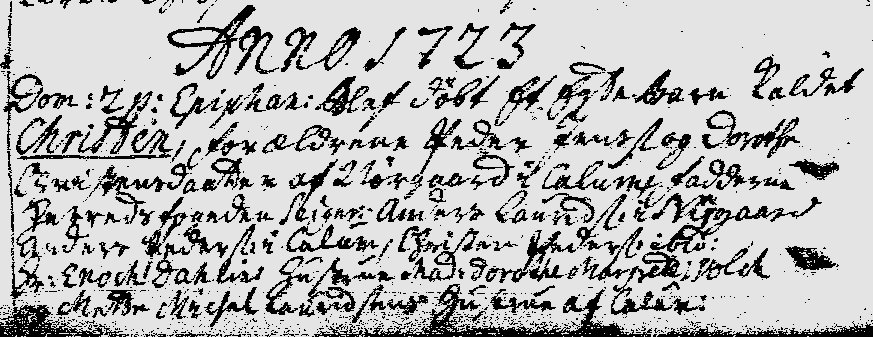 ANNO 1723
Dom: 2 p: Epiphan: blef döbt Et Byde Barn kaldet
Christen, forældrene Peder Jenss: og Dorothe
Christensdaatter af Nörgaard i Calum, fadderne
Herredsfogeden Seign: Anders Lauridss: i Nÿgaard
Anders Pederss: i Calum, Christen Pederss: ibid:
Hr: Enoch Dahlii Hustrue Mad: Dorothe Margrete Wolch
og Mette Michel Lauridsens Hustrue af Calum: